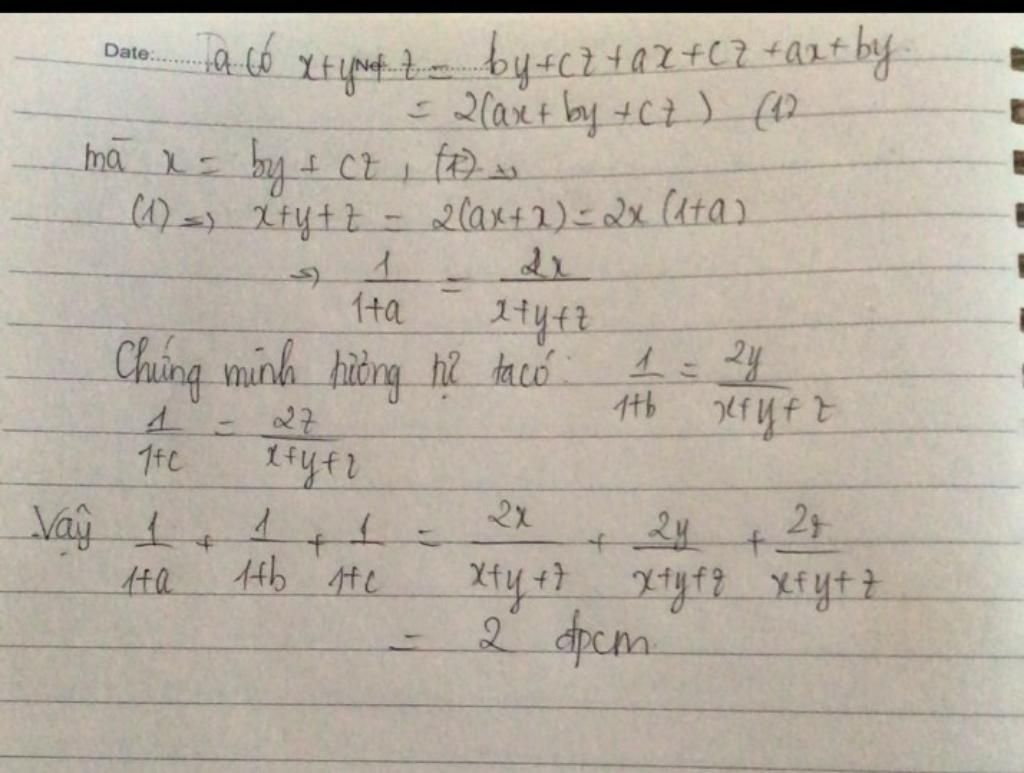 Date: Ta có x+y+z = by+cz+ax+cz+ax+by.
= 2(ax+by+cz) (1)
mà x = by + cz, (1) ⇒
(1) ⇒ x+y+z = 2(ax+x) = 2x(1+a)
⇒ 1/(1+a) = 2x/(x+y+z)
Chứng minh tương tự ta có: 1/(1+b) = 2y/(x+y+z)
1/(1+c) = 2z/(x+y+z)
Vậy 1/(1+a) + 1/(1+b) + 1/(1+c) = 2x/(x+y+z) + 2y/(x+y+z) + 2z/(x+y+z)
= 2 đpcm.